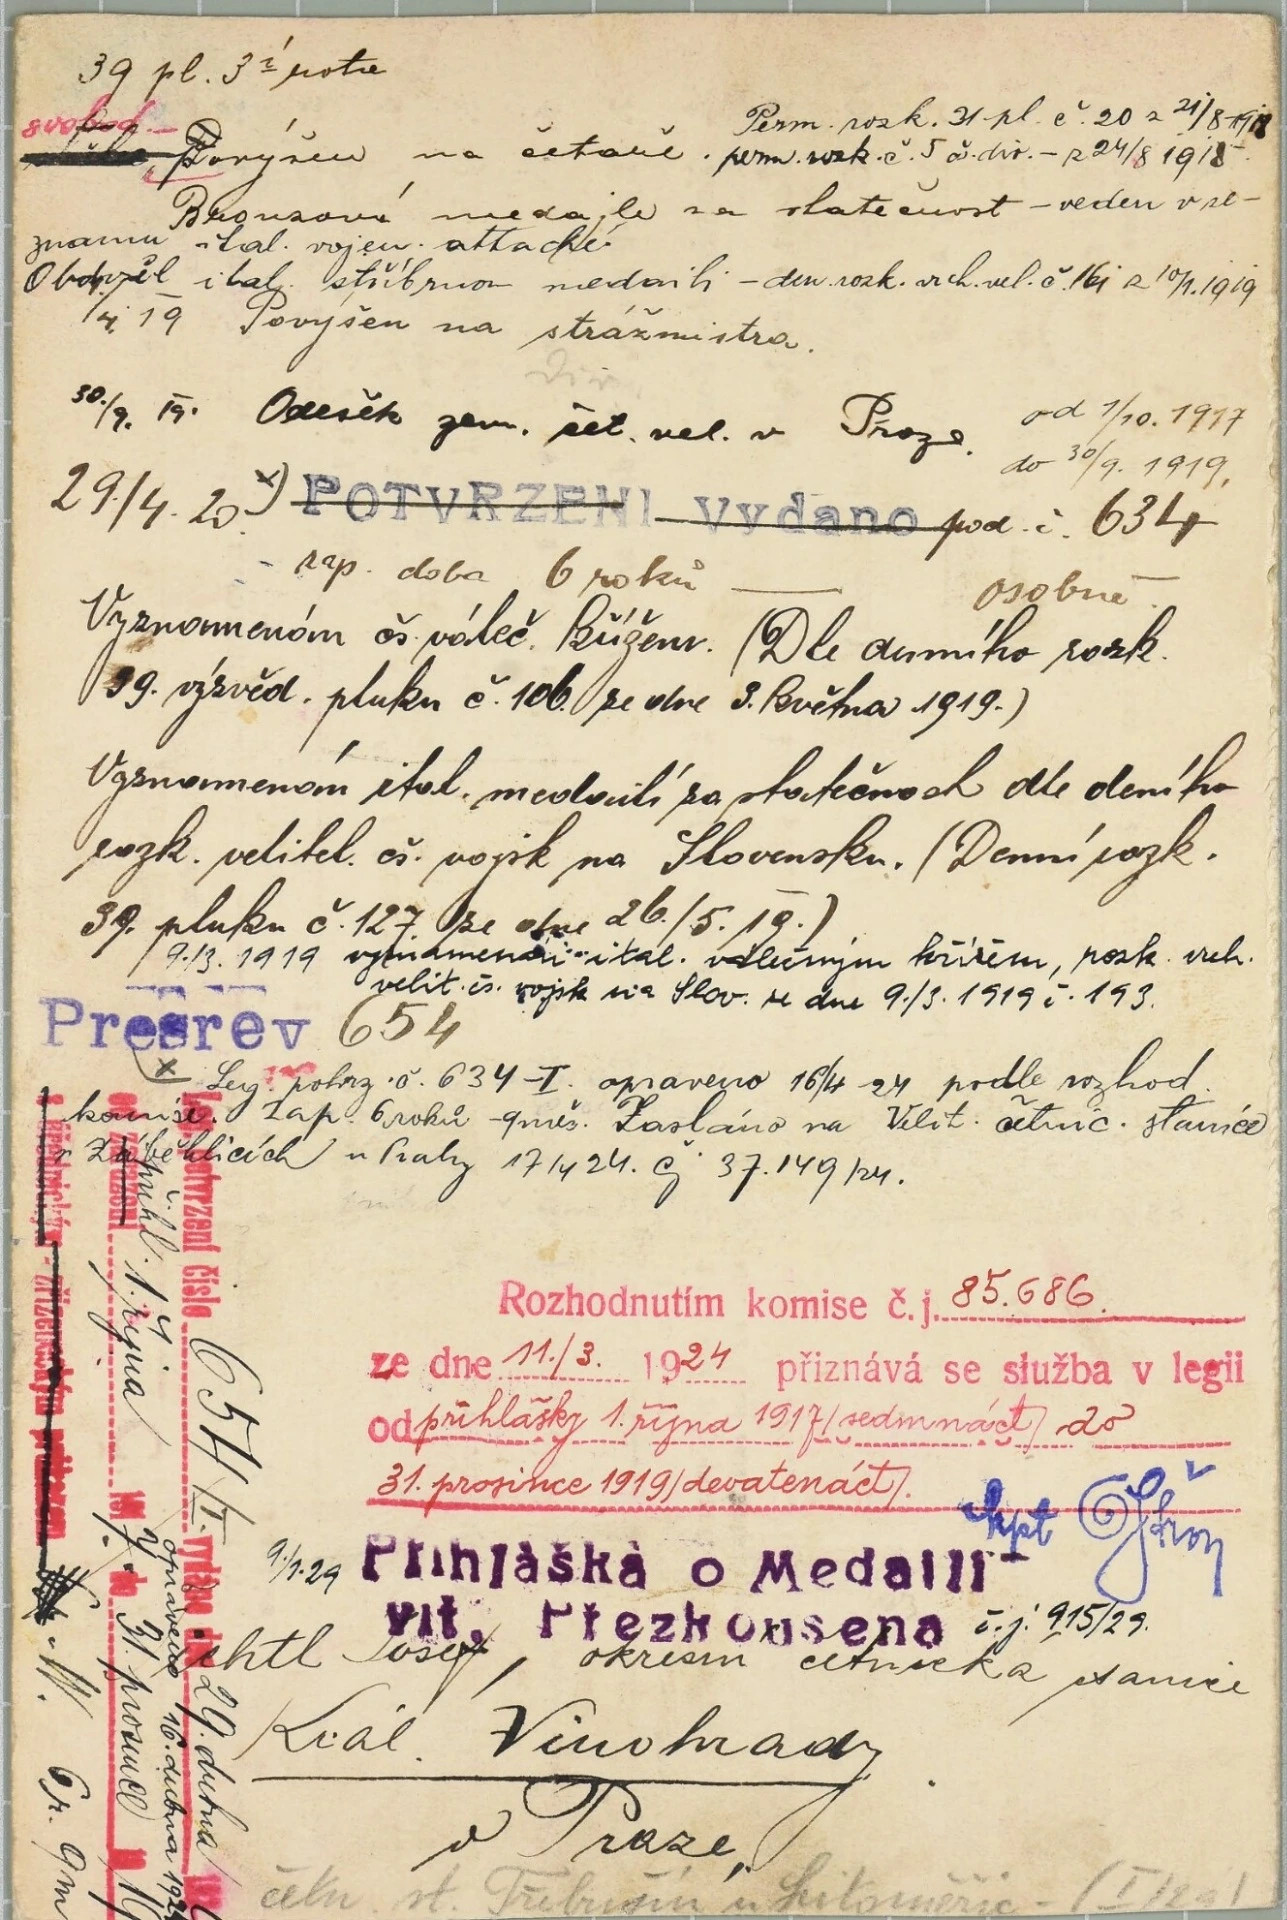 39 pl. 3í rota
svobod. –
Povýšen na četaře. Perm. rozk. 31 pl. č. 20 z 21/8 1918
perm. rozk. č. 5 div. – z 24/8 1918
Bronzová medajle za statečnost – veden v se-
znamu ital. vojen. attaché
Obdržel ital. stříbrnou medaili – den. rozk. vrch. vel. č. 16 z 10/1. 1919
1/4. 19 Povýšen na strážmistra.
30./9. 19. Odešek zem. čet. vel. v Praze. od 1/10. 1917
do 30/9. 1919.
29./4. 20 x) POTVRZENI Vydano pod č. 634
zap. doba 6 roků — osobně.
Vyznamenán čs. váleč. křížem. (Dle denního rozk.
39. výzvěd. pluku č. 106. ze dne 3. května 1919.)
Vyznamenán ital. medailí za statečnost dle deního
rozk. velitel. čs. vojsk na Slovensku. (Denní rozk.
39. pluku č. 127 ze dne 26./5. 19.)
9./3. 1919 vyznamenán ital. válečným křížem, rozk. vrch.
velit. čs. vojsk na Slov. ze dne 9./3. 1919 č. 193.
Prešrev 654
x Leg. potvrz. č. 634-I. opraveno 16/4 24 podle rozhod.
komise. Zap. 6 roků 9 měs. Zasláno na Velit. četnic. stanice
v Záběhlicích u Prahy 17/4 24. čj 37.149/24.
Rozhodnutím komise č. j. 85.686.
ze dne 11./3. 1924 přiznává se služba v legii
od přihlášky 1. října 1917 /sedmnáct/ do
31. prosince 1919 /devatenáct/.
kpt
9./1. 29 Přihláška o Medaili
vít. Přezkousena č. j. 915/29.
chtl Josef, okresní četnická stanice
Král. Vinohrady
v Praze,
četn. st. Třebušín u Litoměřic –
potvrzení číslo 654/I. vydáno dne 29. dubna
opraveno 16. dubna 1924
přihl. 1. října 1917. do 31. prosince 19
6 r. 9 m